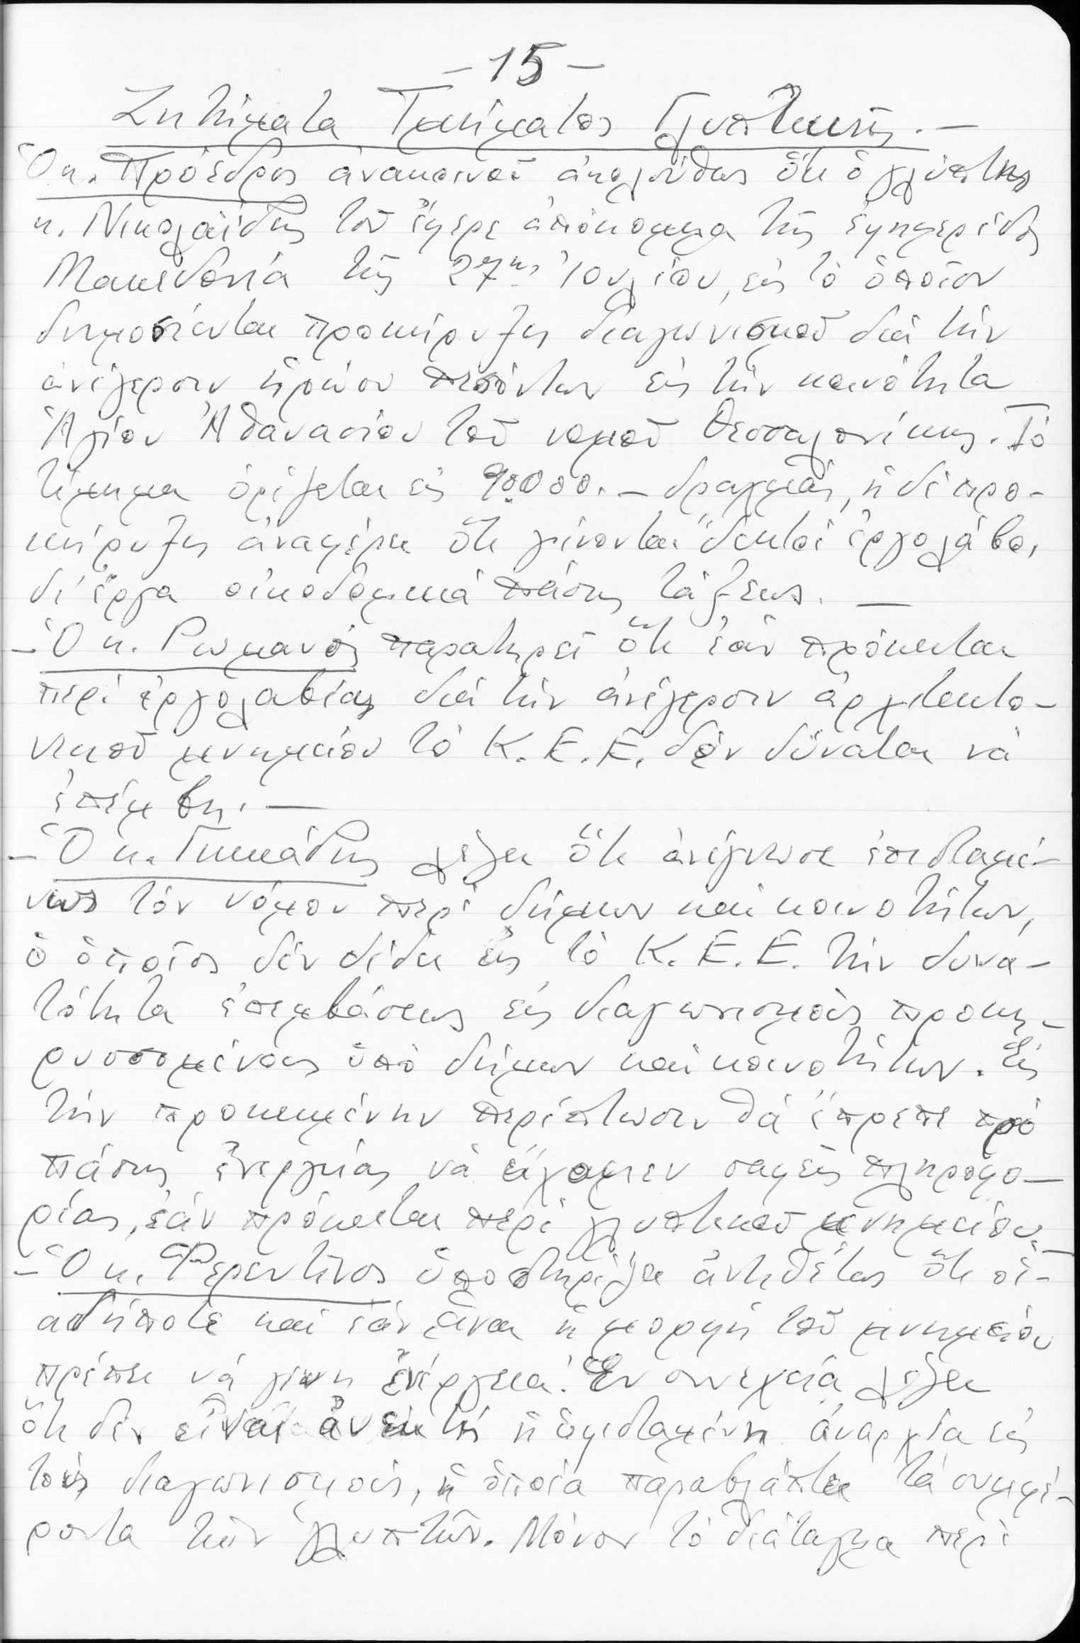 - 15 -
Ζητήματα Τμήματος Γλυπτικῆς. -
Ὁ κ. Πρόεδρος ἀνακοινοῖ ἀκολούθως ὅτι ὁ γλύπτης
κ. Νικολαΐδης τοῦ ἔφερε ἀπόκομμα τῆς ἐφημερίδος
Μακεδονία τῆς 27ης Ἰουλίου, εἰς τὸ ὁποῖον
δημοσιεύεται προκήρυξις διαγωνισμοῦ διὰ τὴν
ἀνέγερσιν ἡρώου πεσόντων εἰς τὴν κοινότητα
Ἁγίου Ἀθανασίου τοῦ νομοῦ Θεσσαλονίκης. Τὸ
τίμημα ὁρίζεται εἰς 90.000. - δραχμάς, ἡ δὲ προ-
κήρυξις ἀναφέρει ὅτι γίνονται δεκτοὶ ἐργολάβοι
δι' ἔργα οἰκοδομικὰ πάσης τάξεως. -
- Ὁ κ. Ρωμανὸς παρατηρεῖ ὅτι ἐὰν πρόκειται
περὶ ἐργολαβίας διὰ τὴν ἀνέγερσιν ἀρχιτεκτο-
νικοῦ μνημείου τὸ Κ.Ε.Ε. δὲν δύναται νὰ
ἐπέμβη. -
- Ὁ κ. Γκικάδης λέγει ὅτι ἀνέγνωσε ἐπισταμέ-
νως τὸν νόμον περὶ δήμων καὶ κοινοτήτων,
ὁ ὁποῖος δὲν δίδει εἰς τὸ Κ.Ε.Ε. τὴν δυνα-
τότητα ἐπεμβάσεως εἰς διαγωνισμοὺς προκη-
ρυσσομένους ὑπὸ δήμων καὶ κοινοτήτων. Εἰς
τὴν προκειμένην περίπτωσιν θὰ ἔπρεπε πρὸ
πάσης ἐνεργείας νὰ εἴχομεν σαφεῖς πληροφο-
ρίας, ἐὰν πρόκειται περὶ γλυπτικοῦ μνημείου. -
- Ὁ κ. Φερεντῖνος ὑποστηρίζει ἀντιθέτως ὅτι οἱ-
αδήποτε καὶ ἐὰν εἶναι ἡ μορφὴ τοῦ μνημείου
πρέπει νὰ γίνη ἐνέργεια. Ἐν συνεχείᾳ λέγει
ὅτι δὲν εἶναι ἀνεκτὴ ἡ ὑφισταμένη ἀναρχία εἰς
τοὺς διαγωνισμούς, ἡ ὁποία παραβλάπτει τὰ συμφέ-
ροντα τῶν γλυπτῶν. Μόνον τὸ διάταγμα περὶ